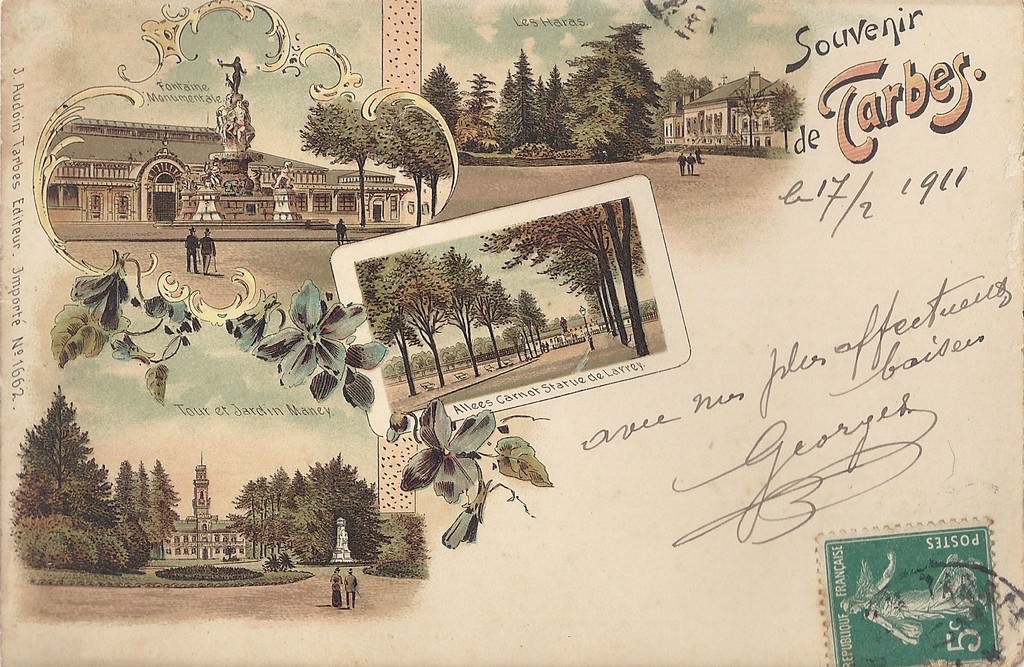 J. Audoin Tarbes Editeur. Importé Nº 1662.
Fontaine
Monumentale
Les Haras
Souvenir
de Tarbes.
le 17/2 1911
Allées Carnot Statue de Larrey.
Tour et Jardin Massey
avec mes plus affectueux
baisers
Georges
REPUBLIQUE FRANÇAISE
POSTES
5c